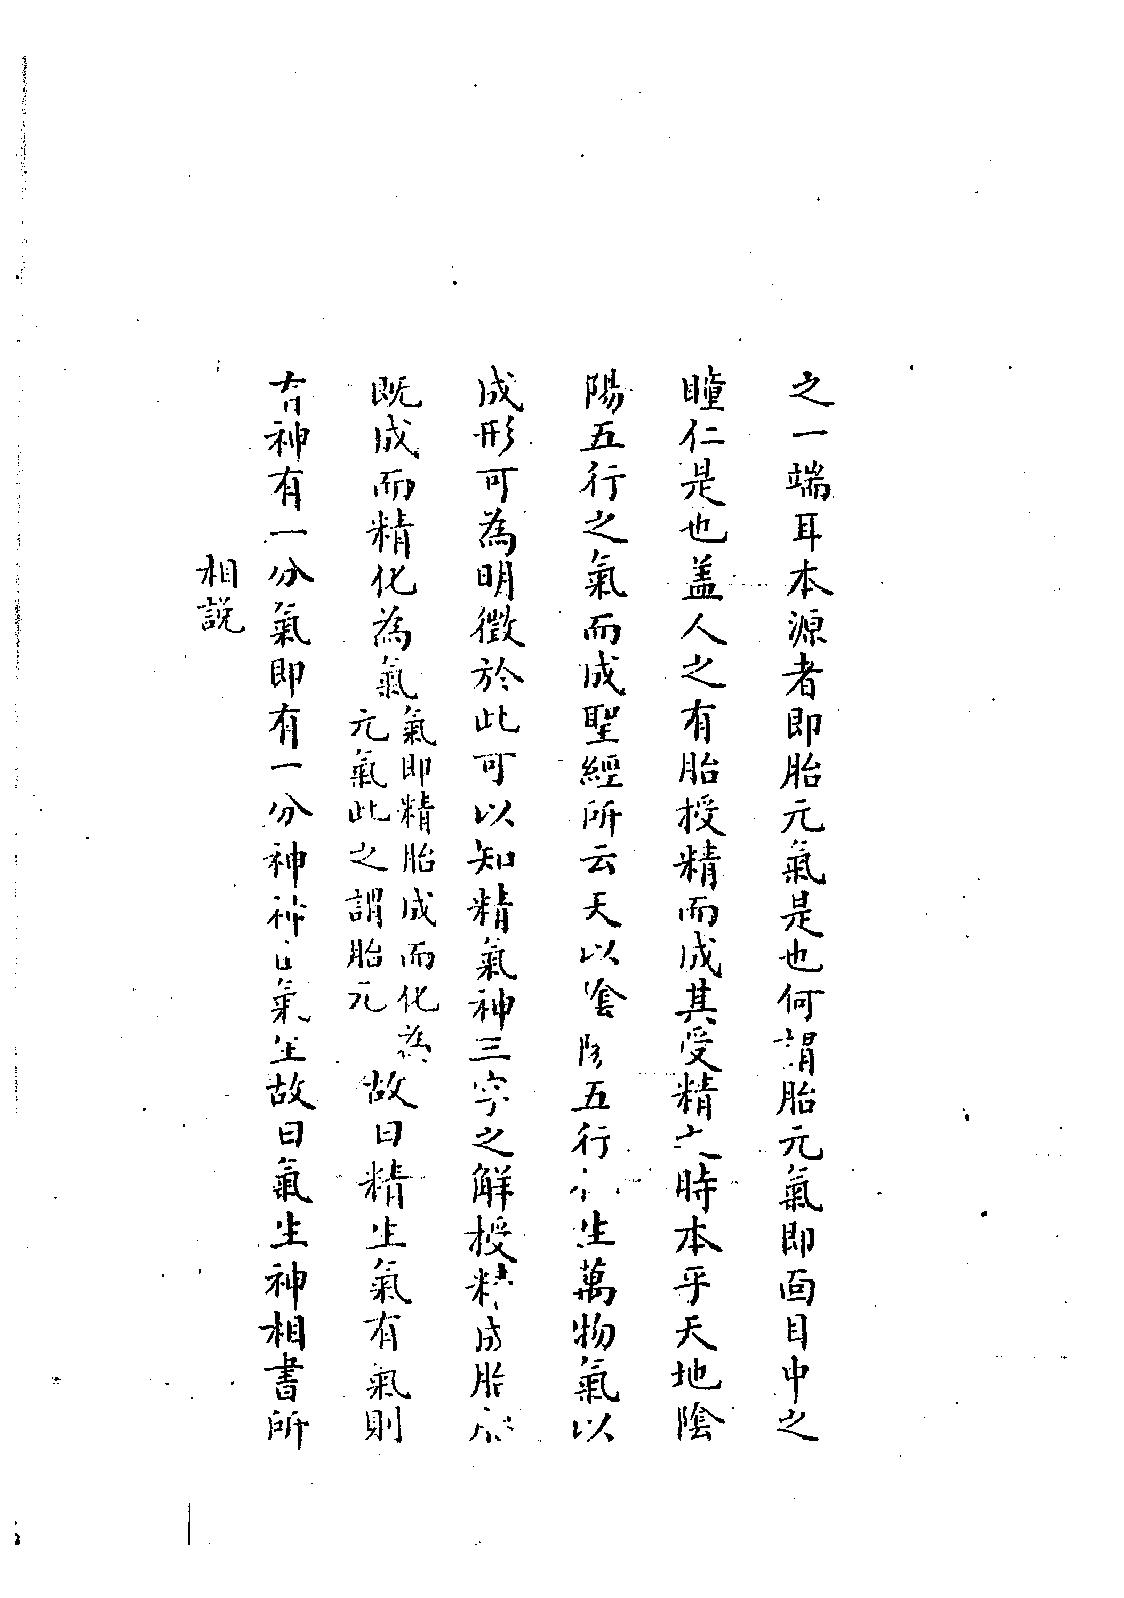 之一端耳本源者即胎元氣是也何謂胎元氣即面目中之
瞳仁是也盖人之有胎授精而成其受精之時本乎天地陰
陽五行之氣而成聖經所云天以陰陽五行生萬物氣以
成形可為明徵於此可以知精氣神三字之解授精成胎
既成而精化為氣
氣即精胎成而化為
元氣此之謂胎元
故曰精生氣有氣則
有神有一分氣即有一分神神由氣生故曰氣生神相書所
相説